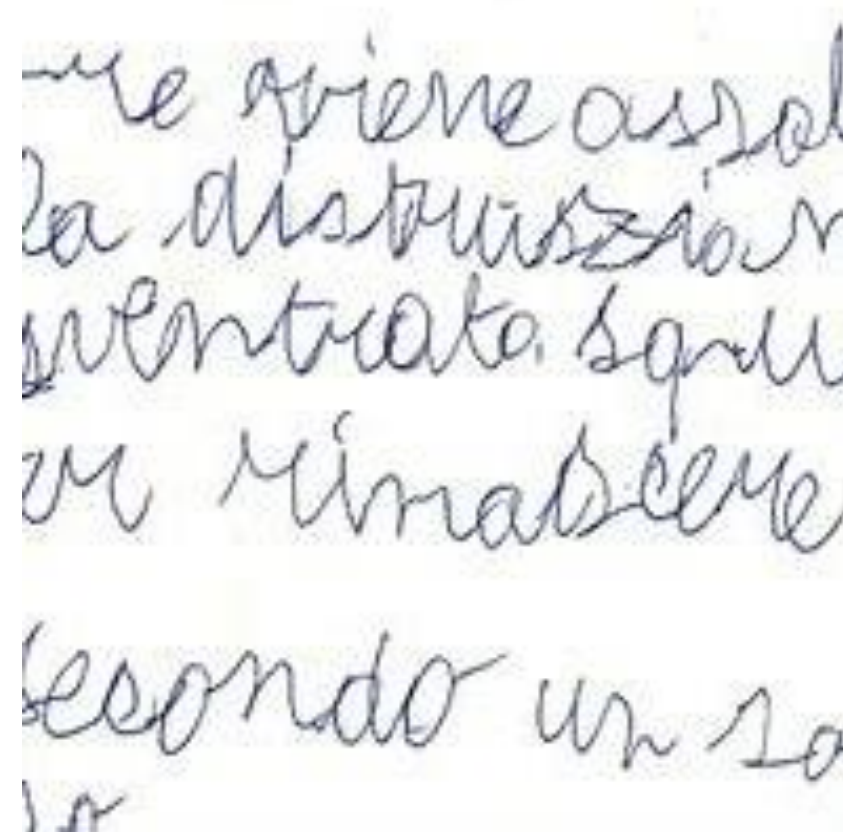 re viene assal
la distruzion
sventrata squ
er rinascere
secondo un so
so